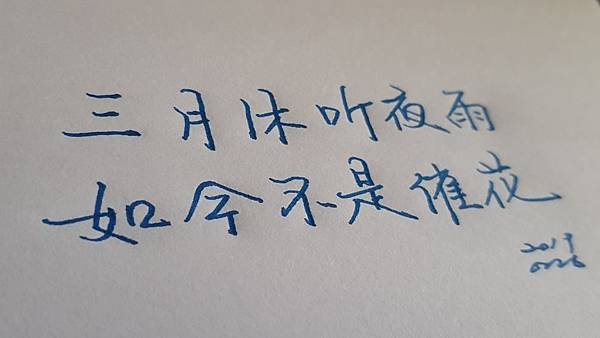 三月休听夜雨
如今不是催花
2019
0226